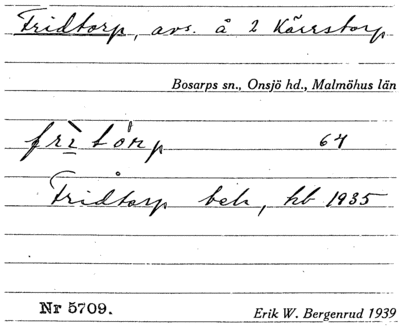 Fridtorp, avs. å 2 Kärrstorp
Bosarps sn., Onsjö hd., Malmöhus län
frì tórp 64
Fridtorp beb, kb 1935
Nr 5709.
Erik W. Bergenrud 1939